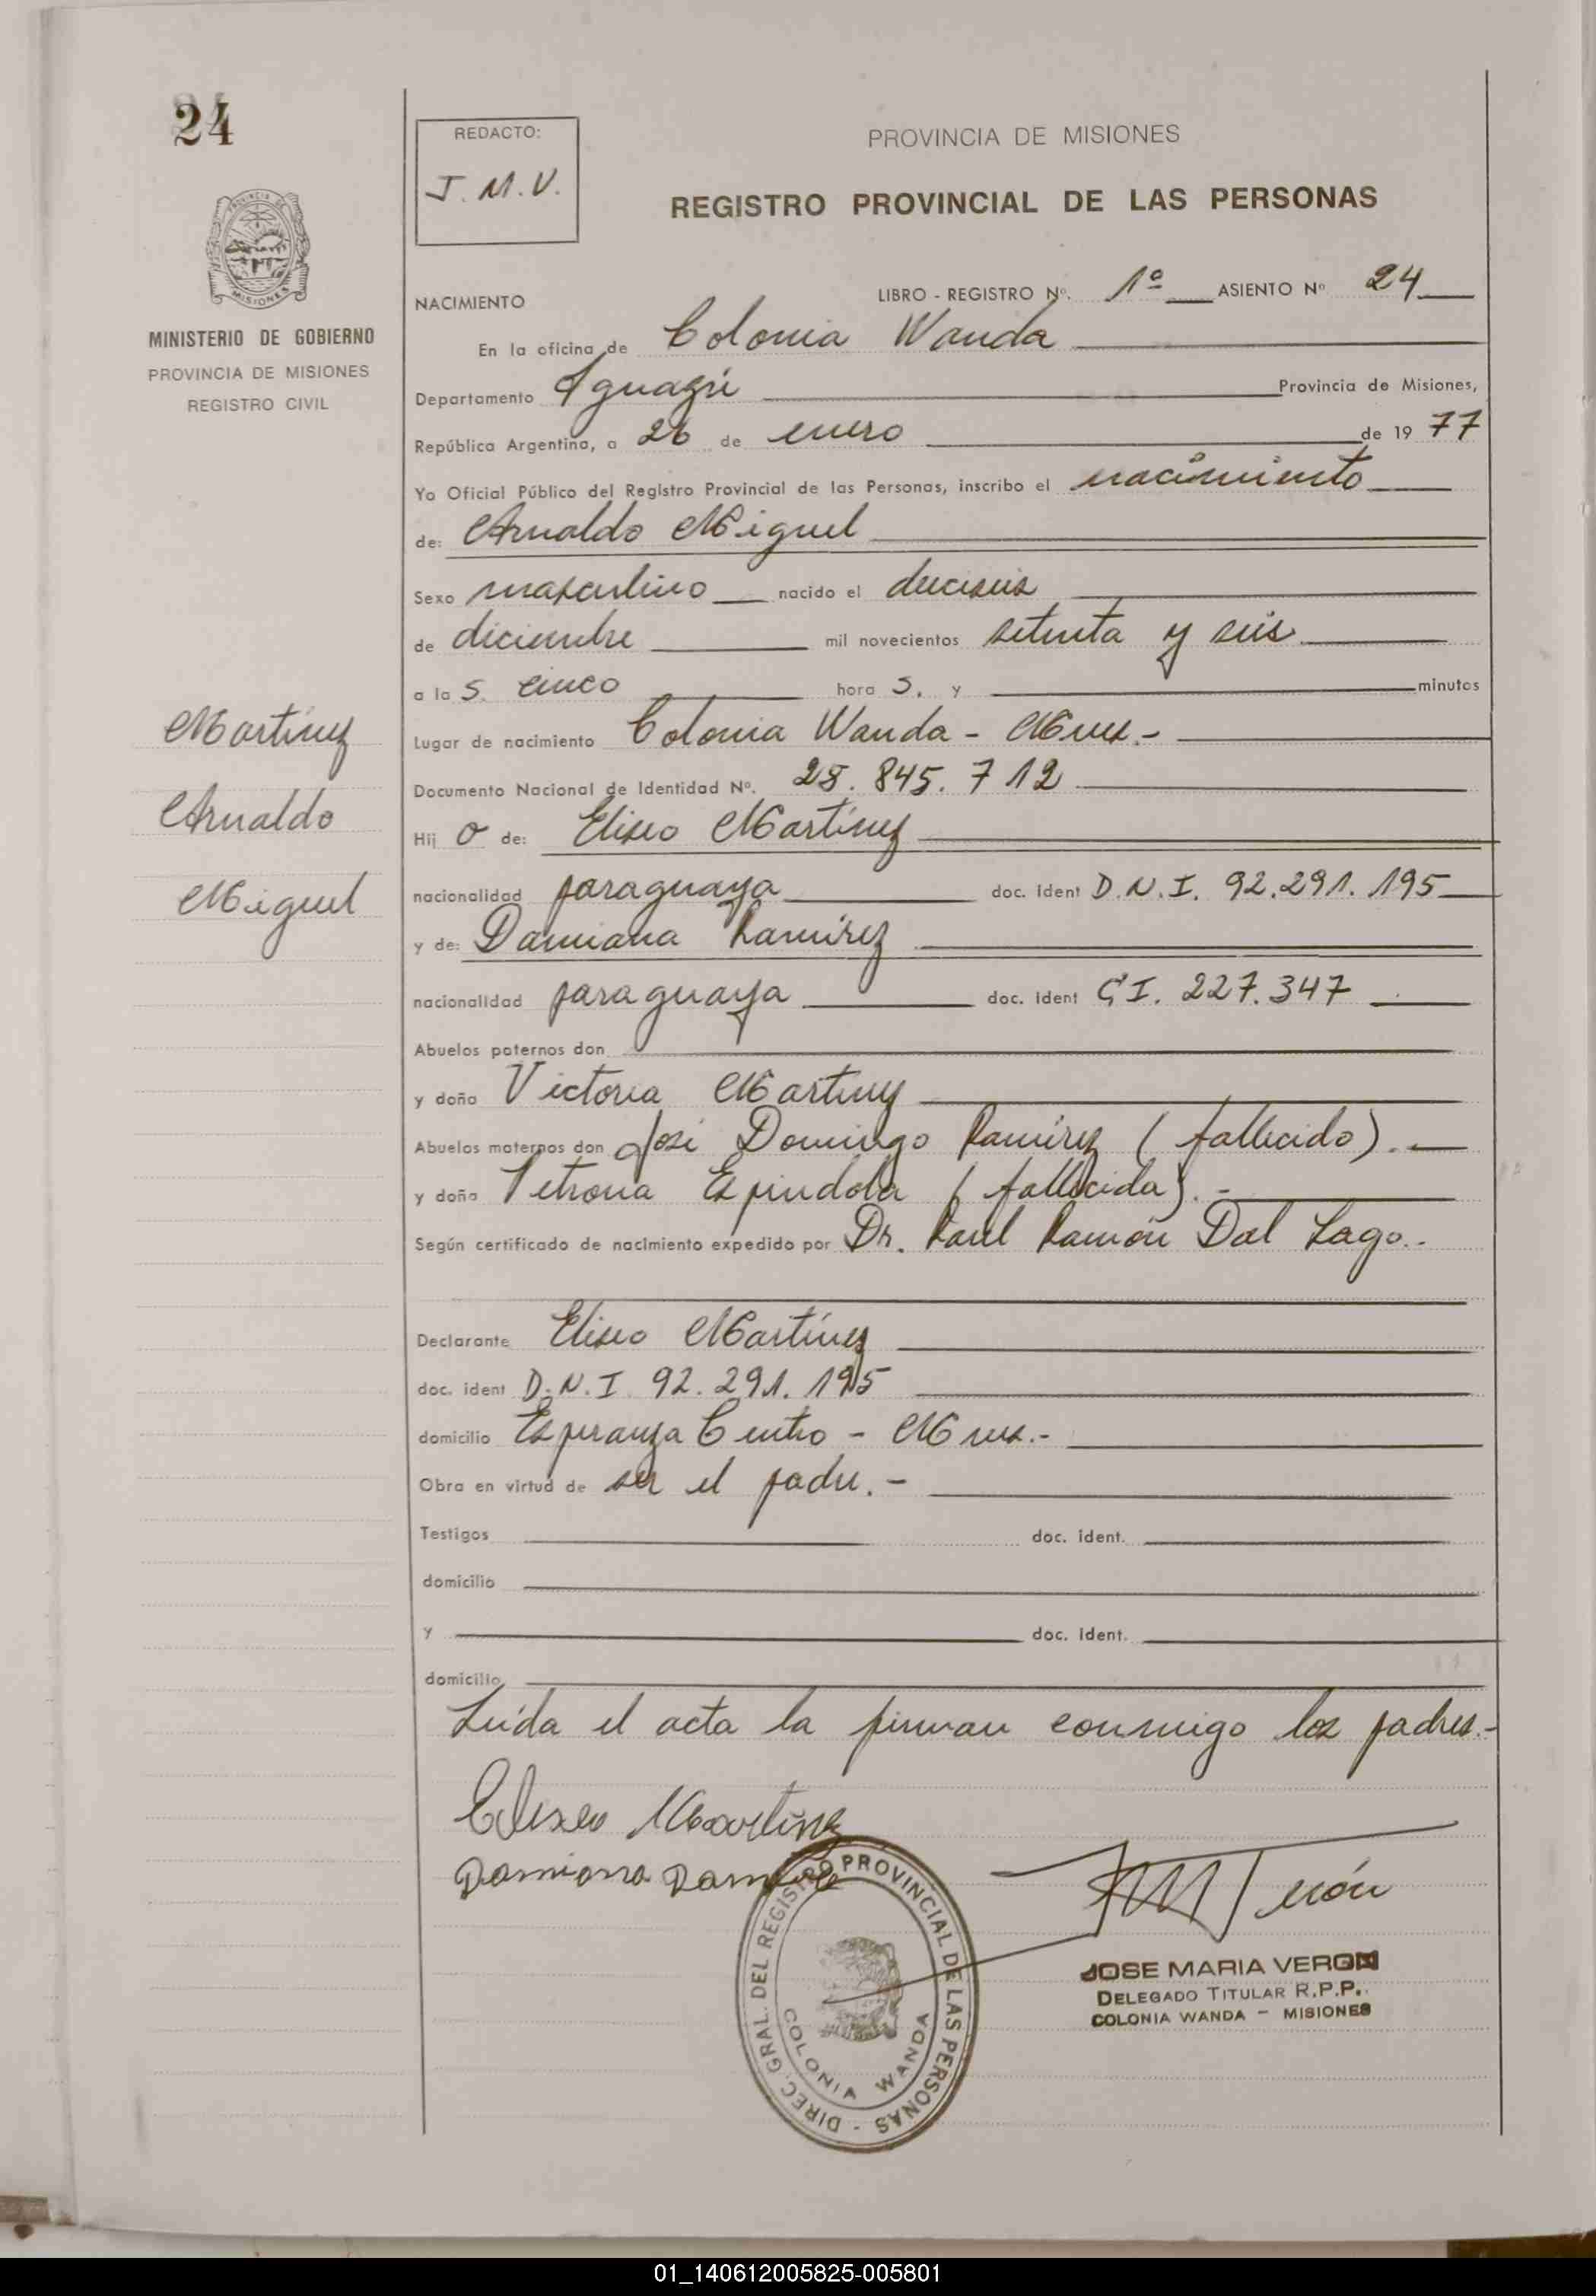 24
MINISTERIO DE GOBIERNO
PROVINCIA DE MISIONES
REGISTRO CIVIL
Martínez
Arnaldo
Miguel
REDACTO:
J. M. V.
PROVINCIA DE MISIONES
REGISTRO PROVINCIAL DE LAS PERSONAS
NACIMIENTO LIBRO - REGISTRO Nº. 1º ASIENTO Nº 24
En la oficina de Colonia Wanda
Departamento Iguazú Provincia de Misiones,
República Argentina, a 26 de enero de 19 77
Yo Oficial Público del Registro Provincial de las Personas, inscribo el nacimiento
de: Arnaldo Miguel
Sexo masculino nacido el dieciseis
de diciembre mil novecientos setenta y seis
a la s. cinco hora s. y minutos
Lugar de nacimiento Colonia Wanda - Mnes.-
Documento Nacional de Identidad Nº. 25.845.712
Hij o de: Eliseo Martínez
nacionalidad paraguaya doc. ident D.N.I. 92.291.195
y de: Damiana Ramírez
nacionalidad paraguaya doc. ident C.I. 227.347
Abuelos paternos don
y doña Victoria Martinez
Abuelos maternos don José Domingo Ramírez (fallecido).
y doña Petrona Espindola (fallecida).-
Según certificado de nacimiento expedido por Dr. Raúl Ramón Dal Lago..
Declarante Eliseo Martínez
doc. ident D.N.I. 92.291.195
domicilio Esperanza Centro - Mnes.-
Obra en virtud de ser el padre.-
Testigos doc. ident.
domicilio
y doc. ident.
domicilio
Leída el acta la firman conmigo los padres.-
Eliseo Martínez
Damiana Ramírez
DIREC. GRAL. DEL REGISTRO PROVINCIAL DE LAS PERSONAS -
COLONIA WANDA
JOSE MARIA VERON
DELEGADO TITULAR R.P.P.
COLONIA WANDA - MISIONES
01_140612005825-005801